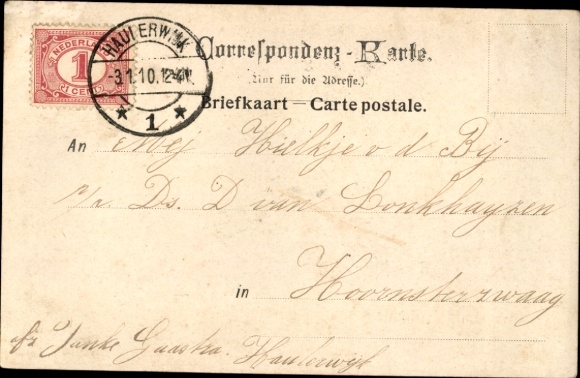 NEDERLAND
1
1 CENT
HAULERWIJK
-3.1.10. 12-4N.
1
Correspondenz-Karte.
(Nur für die Adresse.)
Briefkaart — Carte postale.
An Mej Hielkje v d Bij
p/a Ds. D van Lonkhuyzen
in Hoornsterzwaag
afz Janke Gaastra. Haulerwijk